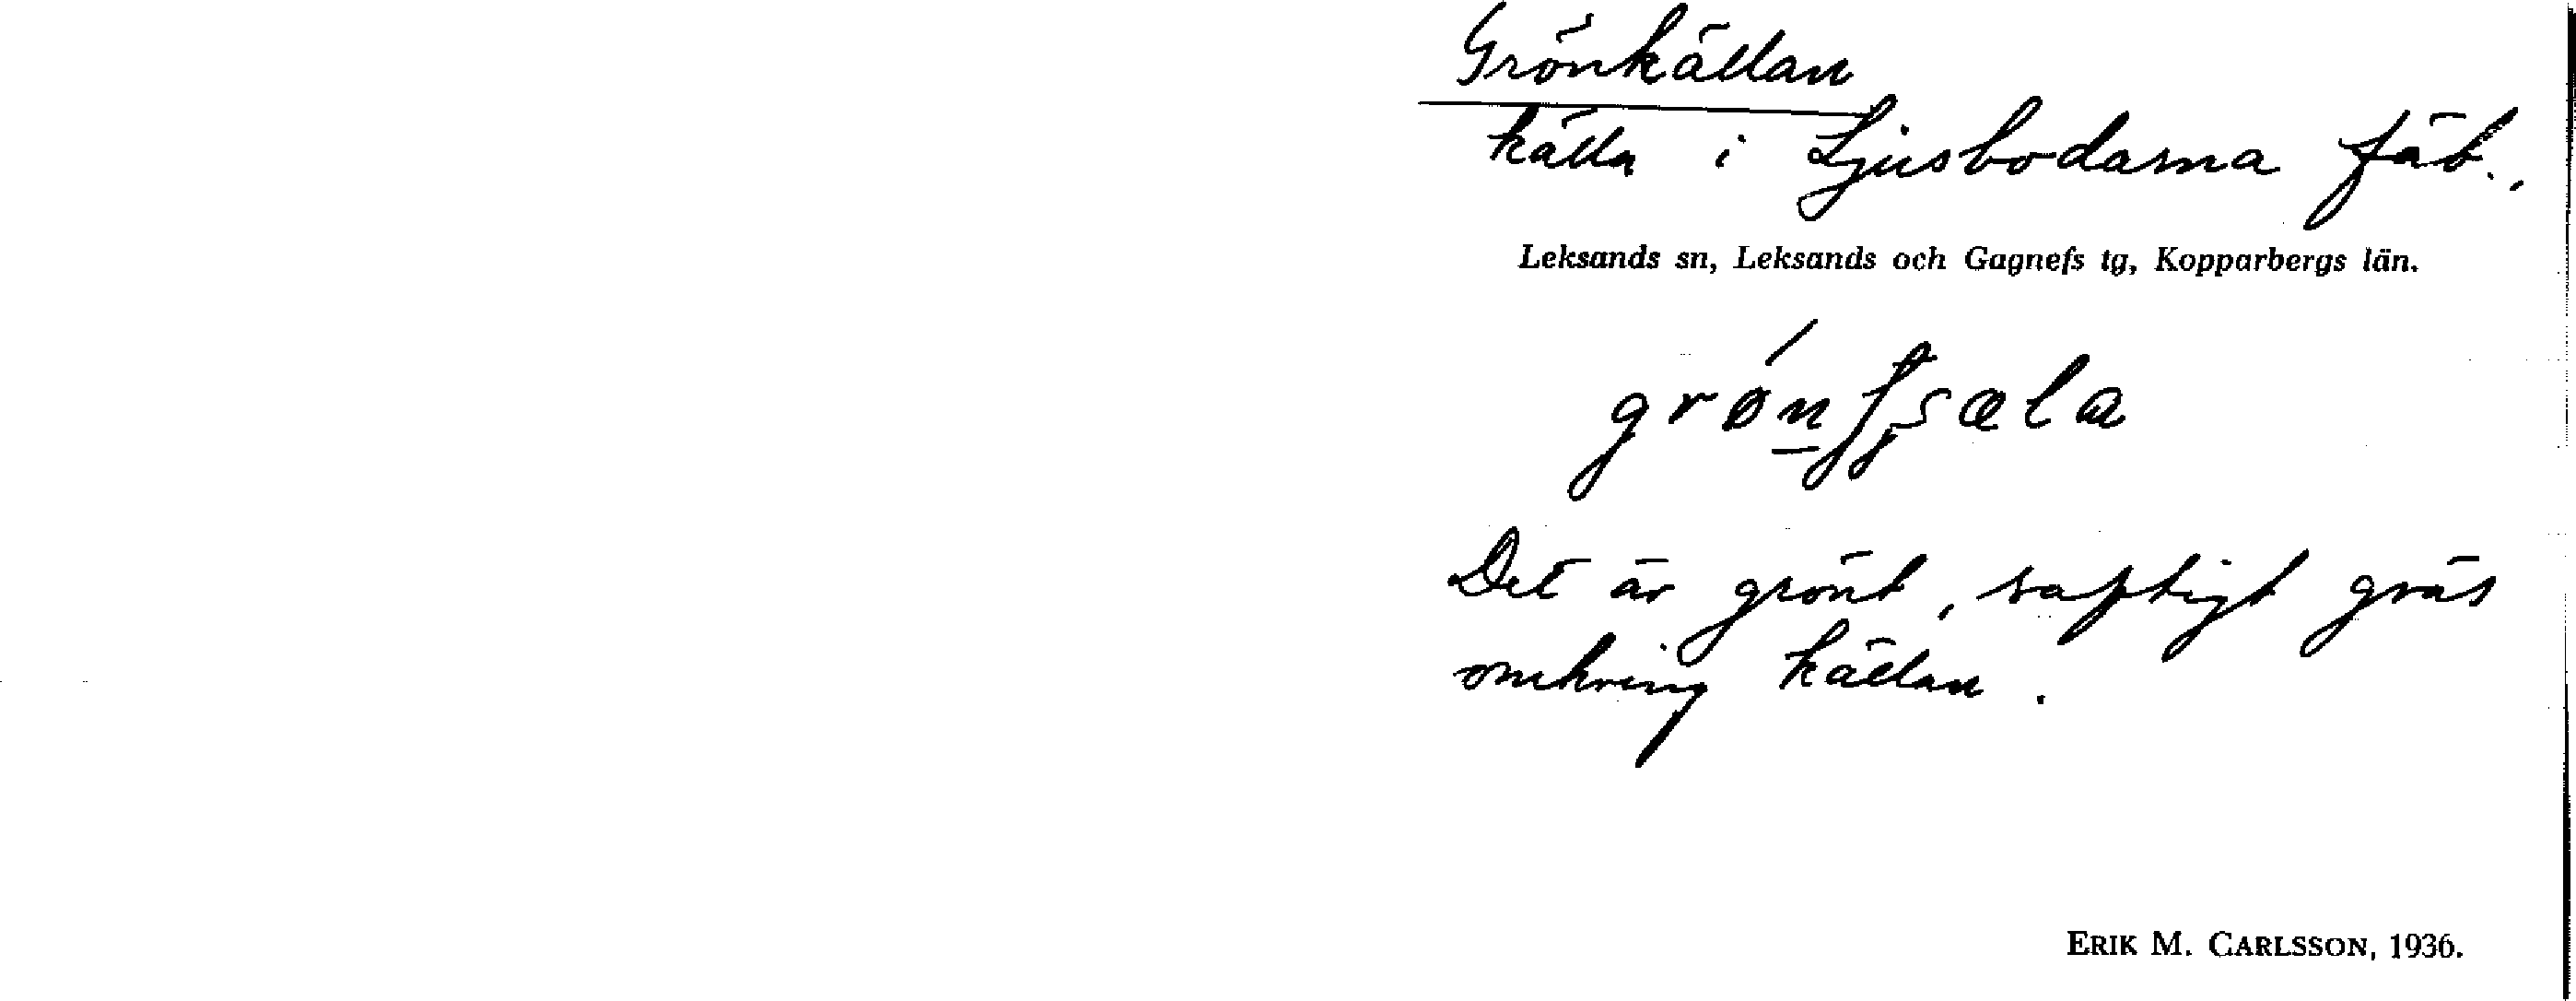 Grönkällan
källa i Ljusbodarna fäb.,
Leksands sn, Leksands och Gagnefs tg, Kopparbergs län.
Det är grönt, saftigt gräs
omkring källan.
ERIK M. CARLSSON, 1936.